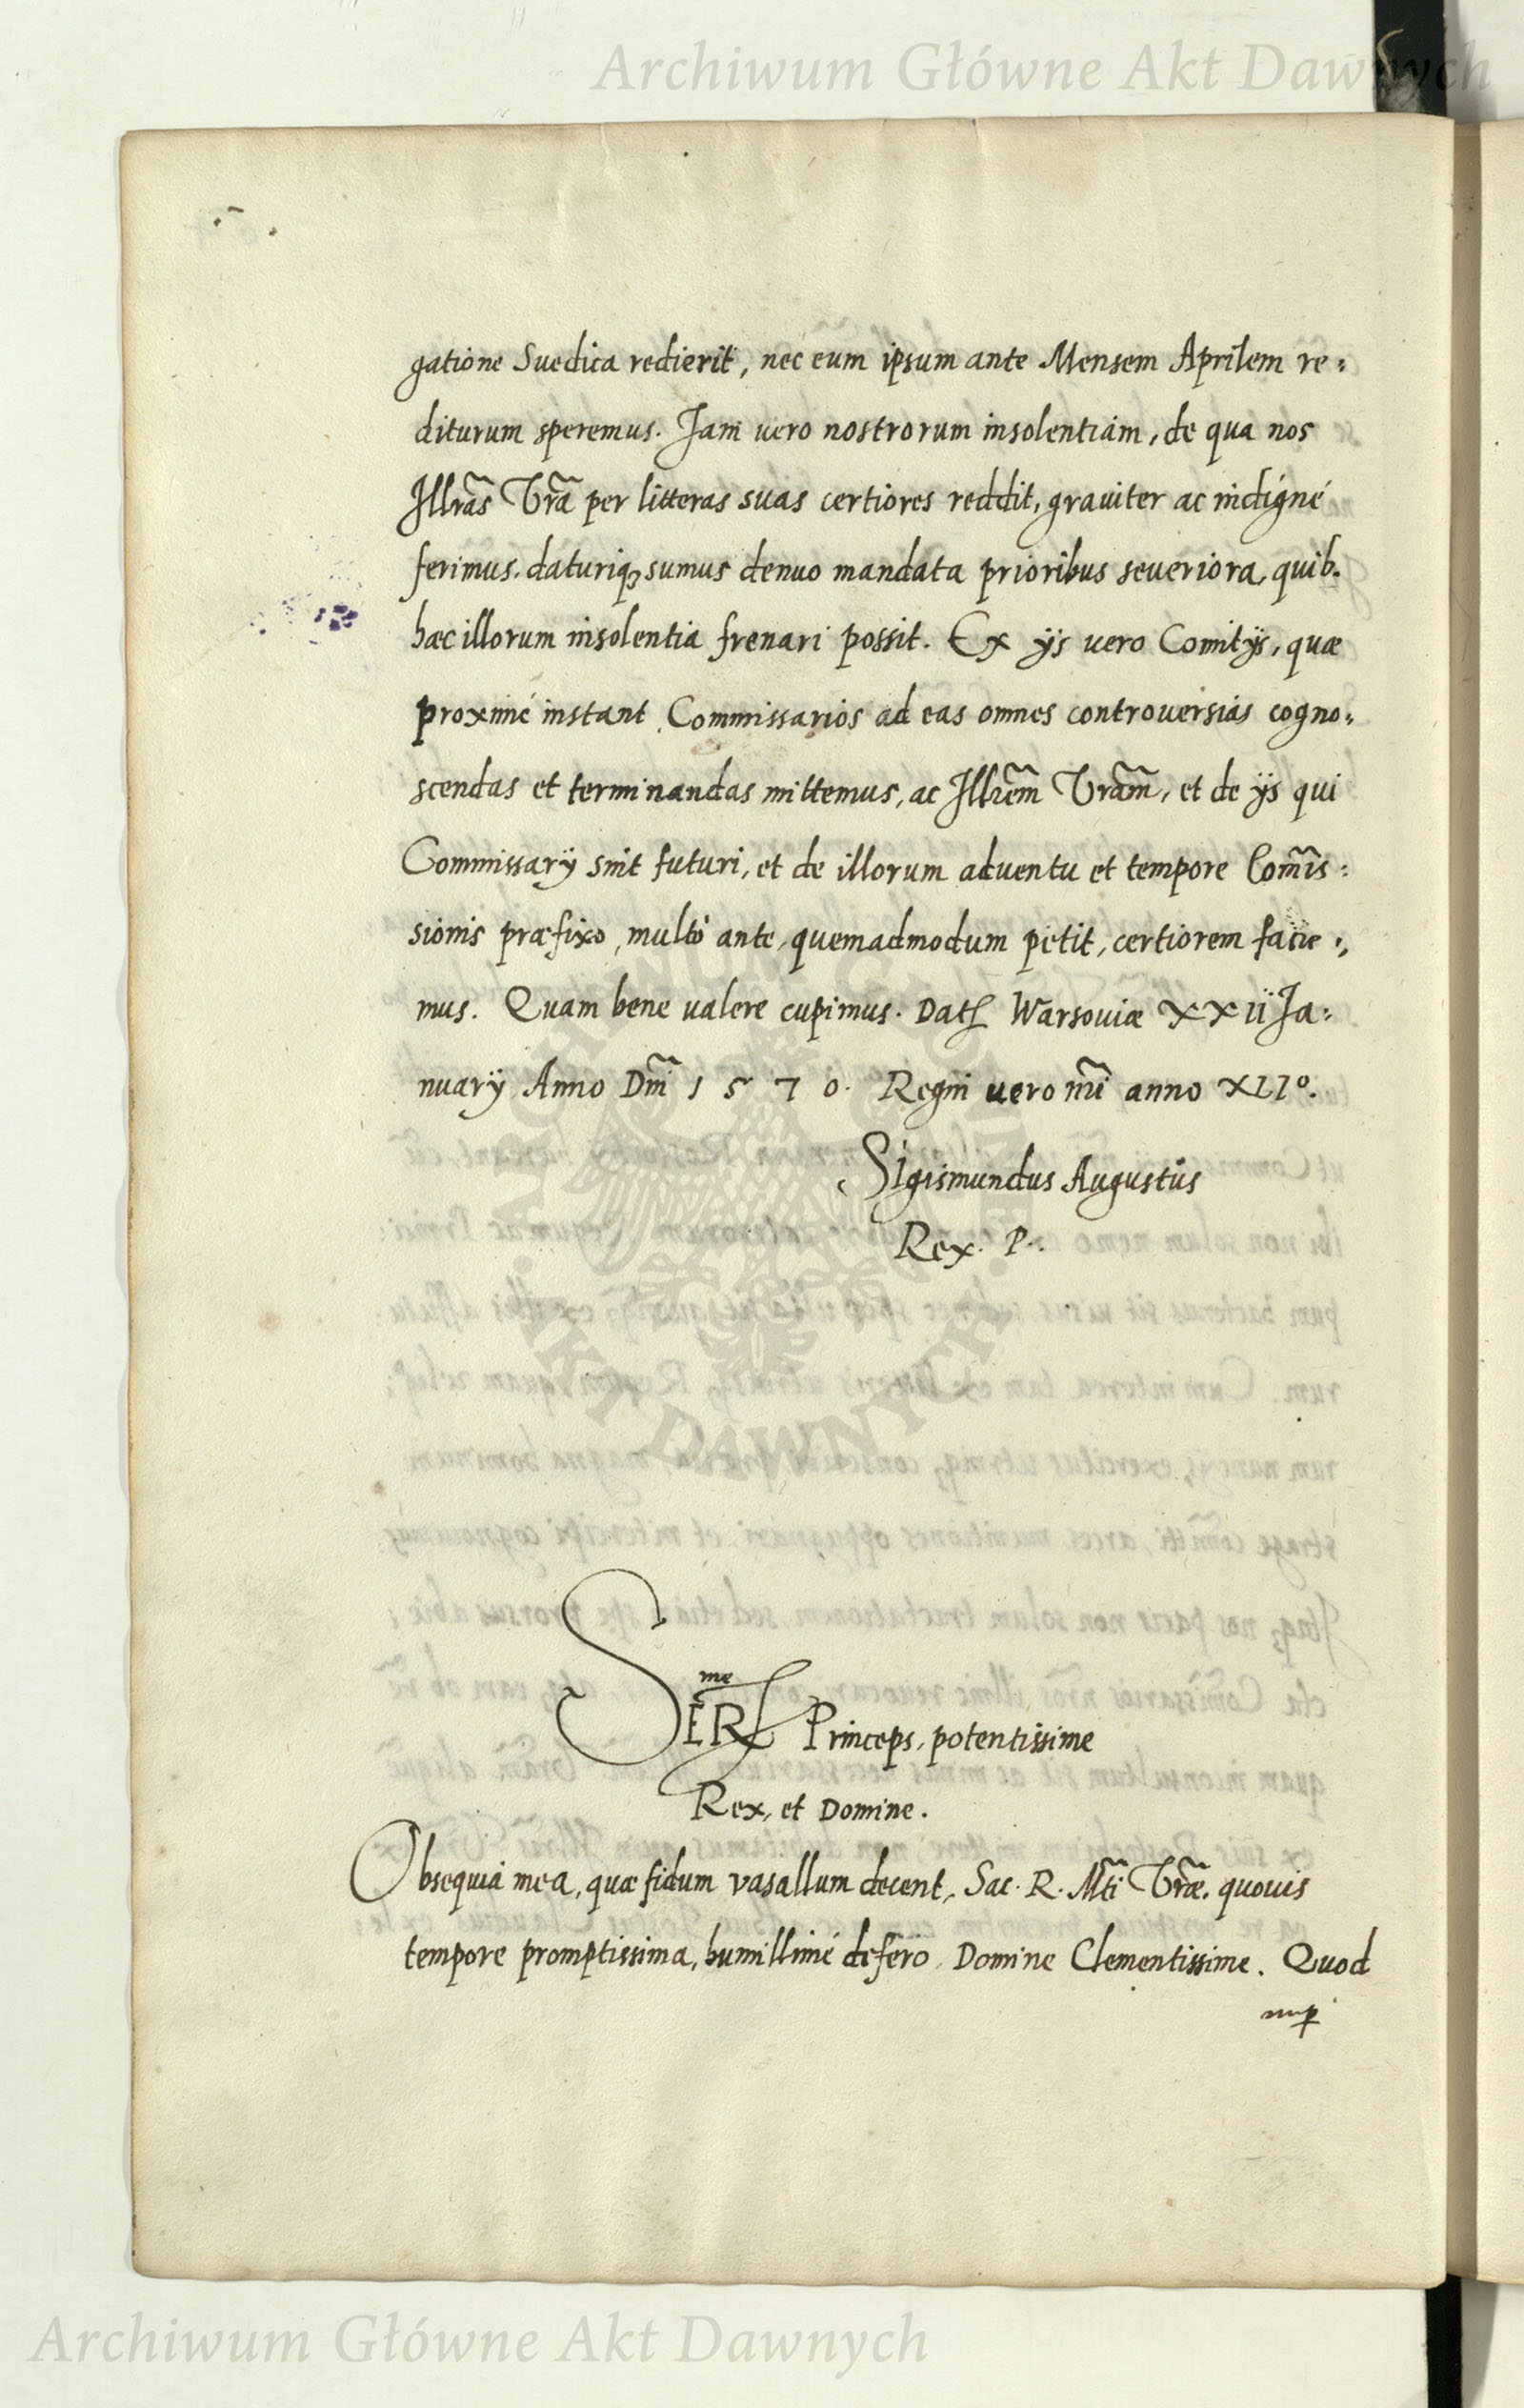 Archiwum Główne Akt Dawnych
gatione Suedica redierit, nec eum ipsum ante Mensem Aprilem re:
diturum speremus. Jam uero nostrorum insolentiam, de qua nos
Illrãs Vrã per litteras suas certiores reddit, grauiter ac indigné
ferimus. daturiqꝫ sumus denuo mandata prioribus seueriora, quib.
hæc illorum insolentia frenari possit. Ex ijs uero Comitijs, quæ
proximé instant Commissarios ad eas omnes controuersias cogno:
scendas et terminandas mittemus, ac Illrẽm Vrãm, et de ijs qui
Commissarij sint futuri, et de illorum aduentu et tempore Com̃is:
sionis præfixo, multò ante, quemadmodum petit, certiorem facie:
mus. Quam bene ualere cupimus. Datꝭ Warsouiæ XXII Ja:
nuarij Anno Dñi 1570. Regni uero nr̃i anno XLI°.
Sigismundus Augustus
Rex. P.
ARCHIWUM GŁÓWNE AKT DAWNYCH
SERꝭme Princeps, potentissime
Rex, et Domine.
Obsequia mea, quæ fidum vasallum decent, Sac. R. Mti Vræ. quouis
tempore promptissima, humillimé defero, Domine Clementissime. Quod
nuꝑ
Archiwum Główne Akt Dawnych